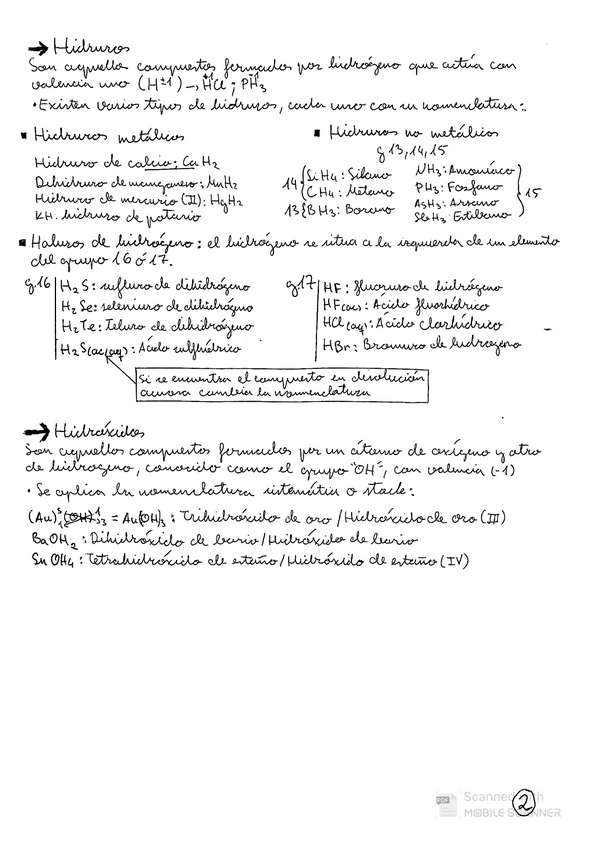 → Hidruros
Son aquellos compuestos formados por hidrógeno que actúa con
valencia uno (H±1) → HCl ; PH3
• Existen varios tipos de hidruros, cada uno con su nomenclatura:
▪ Hidruros metálicos
Hidruro de calcio; CaH2
Dihidruro de manganeso; MnH2
Hidruro de mercurio (II); HgH2
KH. hidruro de potasio
▪ Hidruros no metálicos
g 13, 14, 15
14 { SiH4: Silano
CH4: Metano
13 { BH3: Borano
NH3: Amoníaco
PH3: Fosfano
AsH3: Arsano
SbH3: Estibano
} 15
▪ Haluros de hidrógeno: el hidrógeno se situa a la izquierda de un elemento
del grupo 16 ó 17.
g16 | H2S: sulfuro de dihidrógeno
H2Se: seleniuro de dihidrógeno
H2Te: Teluro de dihidrógeno
H2S(ac/aq): Ácido sulfhídrico
g17 | HF: fluoruro de hidrógeno
HF(ac): Ácido fluorhídrico
HCl(aq): Ácido clorhídrico
HBr: Bromuro de hidrogeno
Si se encuentra el compuesto en disolución
acuosa cambia la nomenclatura
→ Hidróxidos
Son aquellos compuestos formados por un átomo de oxígeno y otro
de hidrogeno, conocido como el grupo "OH", con valencia (-1)
• Se aplica la nomenclatura sistemática o stock:
= Au(OH)3 : Trihidróxido de oro / Hidróxido de oro (III)
BaOH2 : Dihidróxido de bario / Hidróxido de bario
SnOH4 : Tetrahidróxido de estaño / Hidróxido de estaño (IV)
PDF Scanned with
MOBILE SCANNER
2